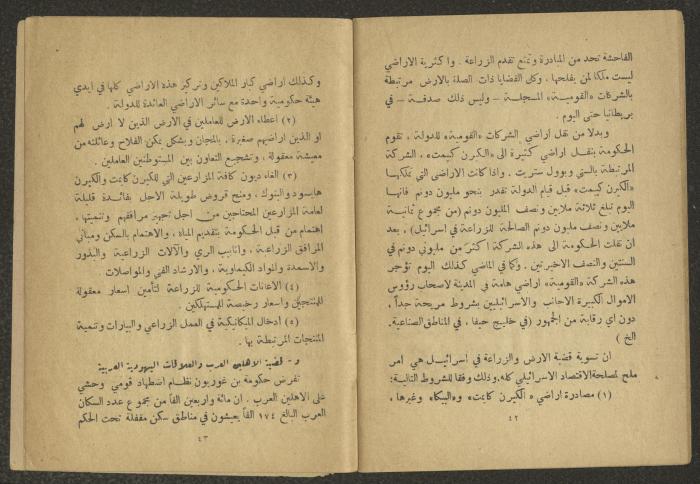 الفاحشة تحد من المبادرة وتمنع تقدم الزراعة . واكثرية الاراضي
ليست ملكا لمن يفلحها . وكل القضايا ذات الصلة بالارض مرتبطة
بالشركات «القومية» المسجلة – وليس ذلك صدفة – في
بريطانيا حتى اليوم .
وبدلا من نقل اراضي الشركات «القومية» للدولة ، تقوم
الحكومة بنقل اراضي كثيرة الى «الكيرن كييمت» ، الشركة
المرتبطة بالستي وبوول ستريت . واذا كانت الاراضي التي تملكها
«الكيرن كييمت» قبل قيام الدولة تقدر بنحو مليون دونم فانها
اليوم تبلغ ثلاثة ملايين ونصف المليون دونم (من مجموع ثمانية
ملايين ونصف مليون دونم الصالحة للزراعة في اسرائيل) ، بعد
ان نقلت الحكومة الى هذه الشركة اكثر من مليوني دونم في
السنتين والنصف الاخيرتين . وكما في الماضي كذلك اليوم تؤجر
هذه الشركة «القومية» اراضي هامة في المدينة لاصحاب رؤوس
الاموال الكبيرة الاجانب والاسرائيليين بشروط مريحة جداً ،
دون اي رقابة من الجمهور (في خليج حيفا ، في المناطق الصناعية.
الخ )
ان تسوية قضية الارض والزراعة في اسرائيل هي امر
ملح لمصلحة الاقتصاد الاسرائيلي كله. وذلك وفقا للشروط التالية:
(١) مصادرة اراضي « الكيرن كاييمت» و«البيكا» وغيرها ،
٤٢
وكذلك اراضي كبار الملاكين وتركيز هذه الاراضي كلها في ايدي
هيئة حكومية واحدة مع سائر الاراضي العائدة للدولة .
(٢) اعطاء الارض للعاملين في الارض الذين لا ارض لهم
او الذين اراضيهم صغيرة ، بالمجان وبشكل يمكن الفلاح وعائلته من
معيشة معقولة ، وتشجيع التعاون بين المستوطنين العاملين .
(٣) الغاء ديون كافة المزارعين التي للكيرن كاييمت والكيرن
هايسود والبنوك ، ومنح قروض طويلة الاجل بفائدة قليلة
لعامة المزارعين المحتاجين من اجل تجهيز مرافقهم وتنميتها ،
اهتمام من قبل الحكومة بتقديم المياه ، والاهتمام بالسكن ومباني
المرافق الزراعية ، وانابيب الري والآلات الزراعية والبذور
والاسمدة والمواد الكيماوية ، والارشاد الفني والمواصلات .
(٤) الاعانات الحكومية للزراعة لتأمين اسعار معقولة
للمنتجين واسعار رخيصة للمستهلكين .
(٥) ادخال الميكانيكية في العمل الزراعي والبيارات وتنمية
المنتجات المرتبطة بها .
و - قضية الاهلين العرب والعلاقات اليهودية العربية
تفرض حكومة بن غوريون نظام اضطهاد قومي وحشي
على الاهلين العرب . ان مائة واربعين الفا من مجموع عدد السكان
العرب البالغ ١٧٤ الفا يعيشون في مناطق سكن مقفلة تحت الحكم
٤٣